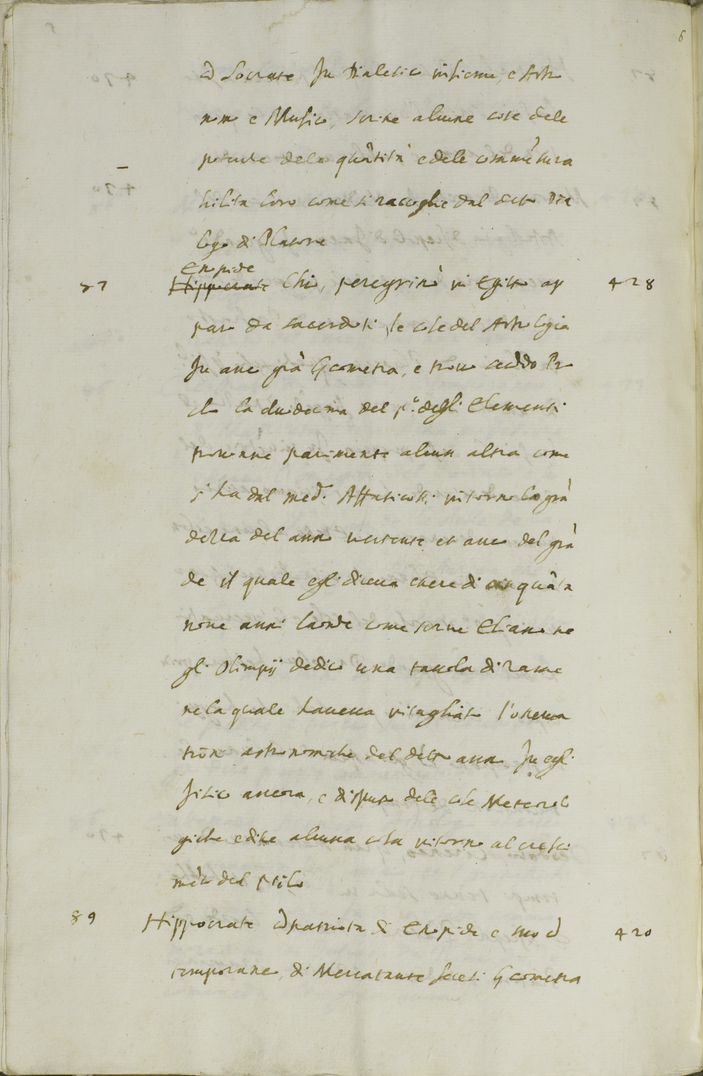 6
di Socrate fu Dialetico insieme, e Astro
nomo e Musico, scrisse alcune cose dele
potenze dele quātità e dele commēsura
bilità loro come si raccoglie dal detto Dia
logo di Platone
Enopide
87 Hippocrate Chio, peregrinò in Egitto ap 428
parò da sacerdoti le cose del Astrologia
fu anco grā Geometra, e trovò secōdo Pr
clo la duodecima del p.º degli Elementi
trovonne parimente alcune altra come
s'ha dal med.º Affaticossi intorno la grā
dezza del anno vertente et anco del grā
de il quale egli diceva essere di cinquāta
nove anni laonde come scrive Eliano ne
gli Olimpij dedicò una tavola di rame
ne la quale haveva intagliato l'osserva
tioni astronomiche del detto anno fu egli
fisico ancora, e disputò dele cose Meteorolo
giche e disse alcuna cosa intorno al cresci
mēto del Nilo
89 Hippocrate cōpatriota di Enopide e suo cō 420
temporaneo, di Mercatante fecesi Geometra